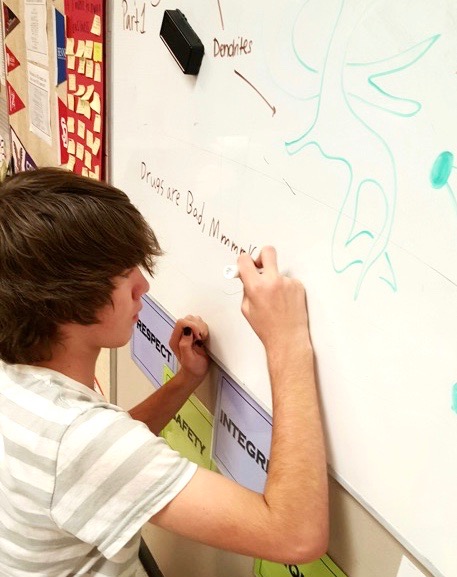 Part 1
Dendrites
Drugs are Bad, Mmmm
RESPECT
SAFETY
INTEGRI